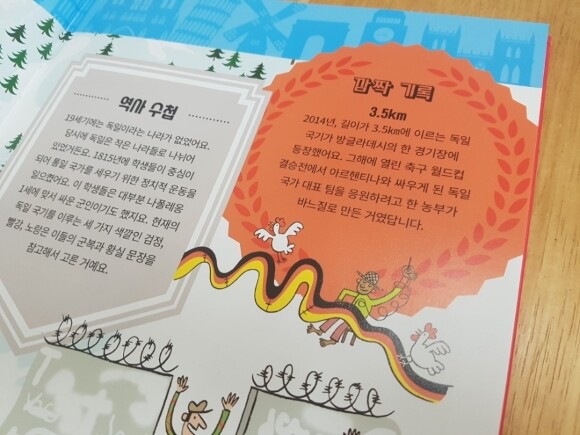 역사 수첩
19세기에는 독일이라는 나라가 없었어요.
당시에 독일은 작은 나라들로 나뉘어
있었거든요. 1815년에 학생들이 중심이
되어 통일 국가를 세우기 위한 정치적 운동을
일으켰어요. 이 학생들은 대부분 나폴레옹
1세에 맞서 싸운 군인이기도 했지요. 현재의
독일 국기를 이루는 세 가지 색깔인 검정,
빨강, 노랑은 이들의 군복과 황실 문장을
참고해서 고른 거예요.
깜짝 기록
3.5km
2014년, 길이가 3.5km에 이르는 독일
국기가 방글라데시의 한 경기장에
등장했어요. 그해에 열린 축구 월드컵
결승전에서 아르헨티나와 싸우게 된 독일
국가 대표 팀을 응원하려고 한 농부가
바느질로 만든 거였답니다.